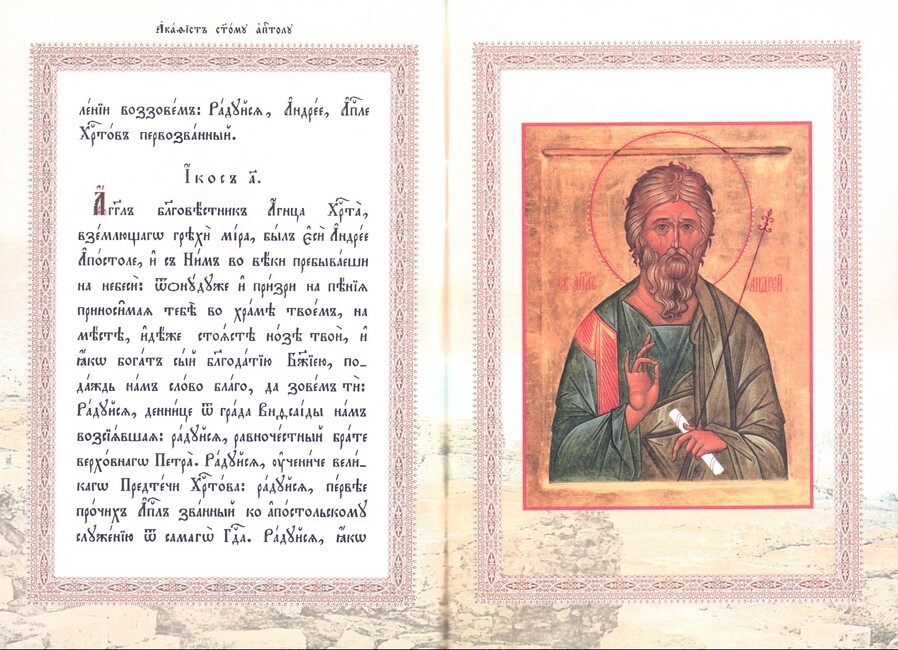 А҆ка́ѳїстъ ст҃о́мꙋ а҆пⷭ҇толꙋ
ле́нїи воззове́мъ: Ра́дꙋйсѧ, А҆ндре́е, А҆пⷭ҇ле
Хрⷭ҇то́въ первозва́нный.
І҆́косъ а҃.
А҆́гг҃лъ бл҃гове́стникъ А҆́гнца Хрⷭ҇та̀,
взе́млющагѡ грѣхѝ мі́ра, бы́лъ є҆сѝ А҆ндре́е
А҆по́столе, и҆ съ Ни́мъ во вѣ́ки пребыва́еши
на небесѝ: ѿѻнꙋ́дꙋже и҆ при́зри на пѣ̑нїѧ
приноси̑маѧ тебѣ̀ во хра́мѣ твое́мъ, на
мѣ́стѣ, и҆дѣ́же стоѧ́стѣ но́зѣ твоѝ, и҆
ꙗ҆́кѡ бога́тъ сы́й бл҃года́тїю Бж҃їею, по-
да́ждь на́мъ сло́во бла́го, да зове́мъ тѝ:
Ра́дꙋйсѧ, денни́це ѿ гра́да Виѳсаі́ды на́мъ
возсїѧ́вшаѧ: ра́дꙋйсѧ, равноче́стный бра́те
верхо́внагѡ Петра̀. Ра́дꙋйсѧ, ᲂу҆чениче вели́-
кагѡ Предте́чи Хрⷭ҇то́ва: ра́дꙋйсѧ, пе́рвѣе
про́чихъ А҆пⷭ҇лъ зва́нный ко а҆по́стольскомꙋ
слꙋже́нїю ѿ самагѡ̀ Гдⷭ҇а. Ра́дꙋйсѧ, ꙗ҆́кѡ
СВ. АПЛЪ АНДРЕЙ